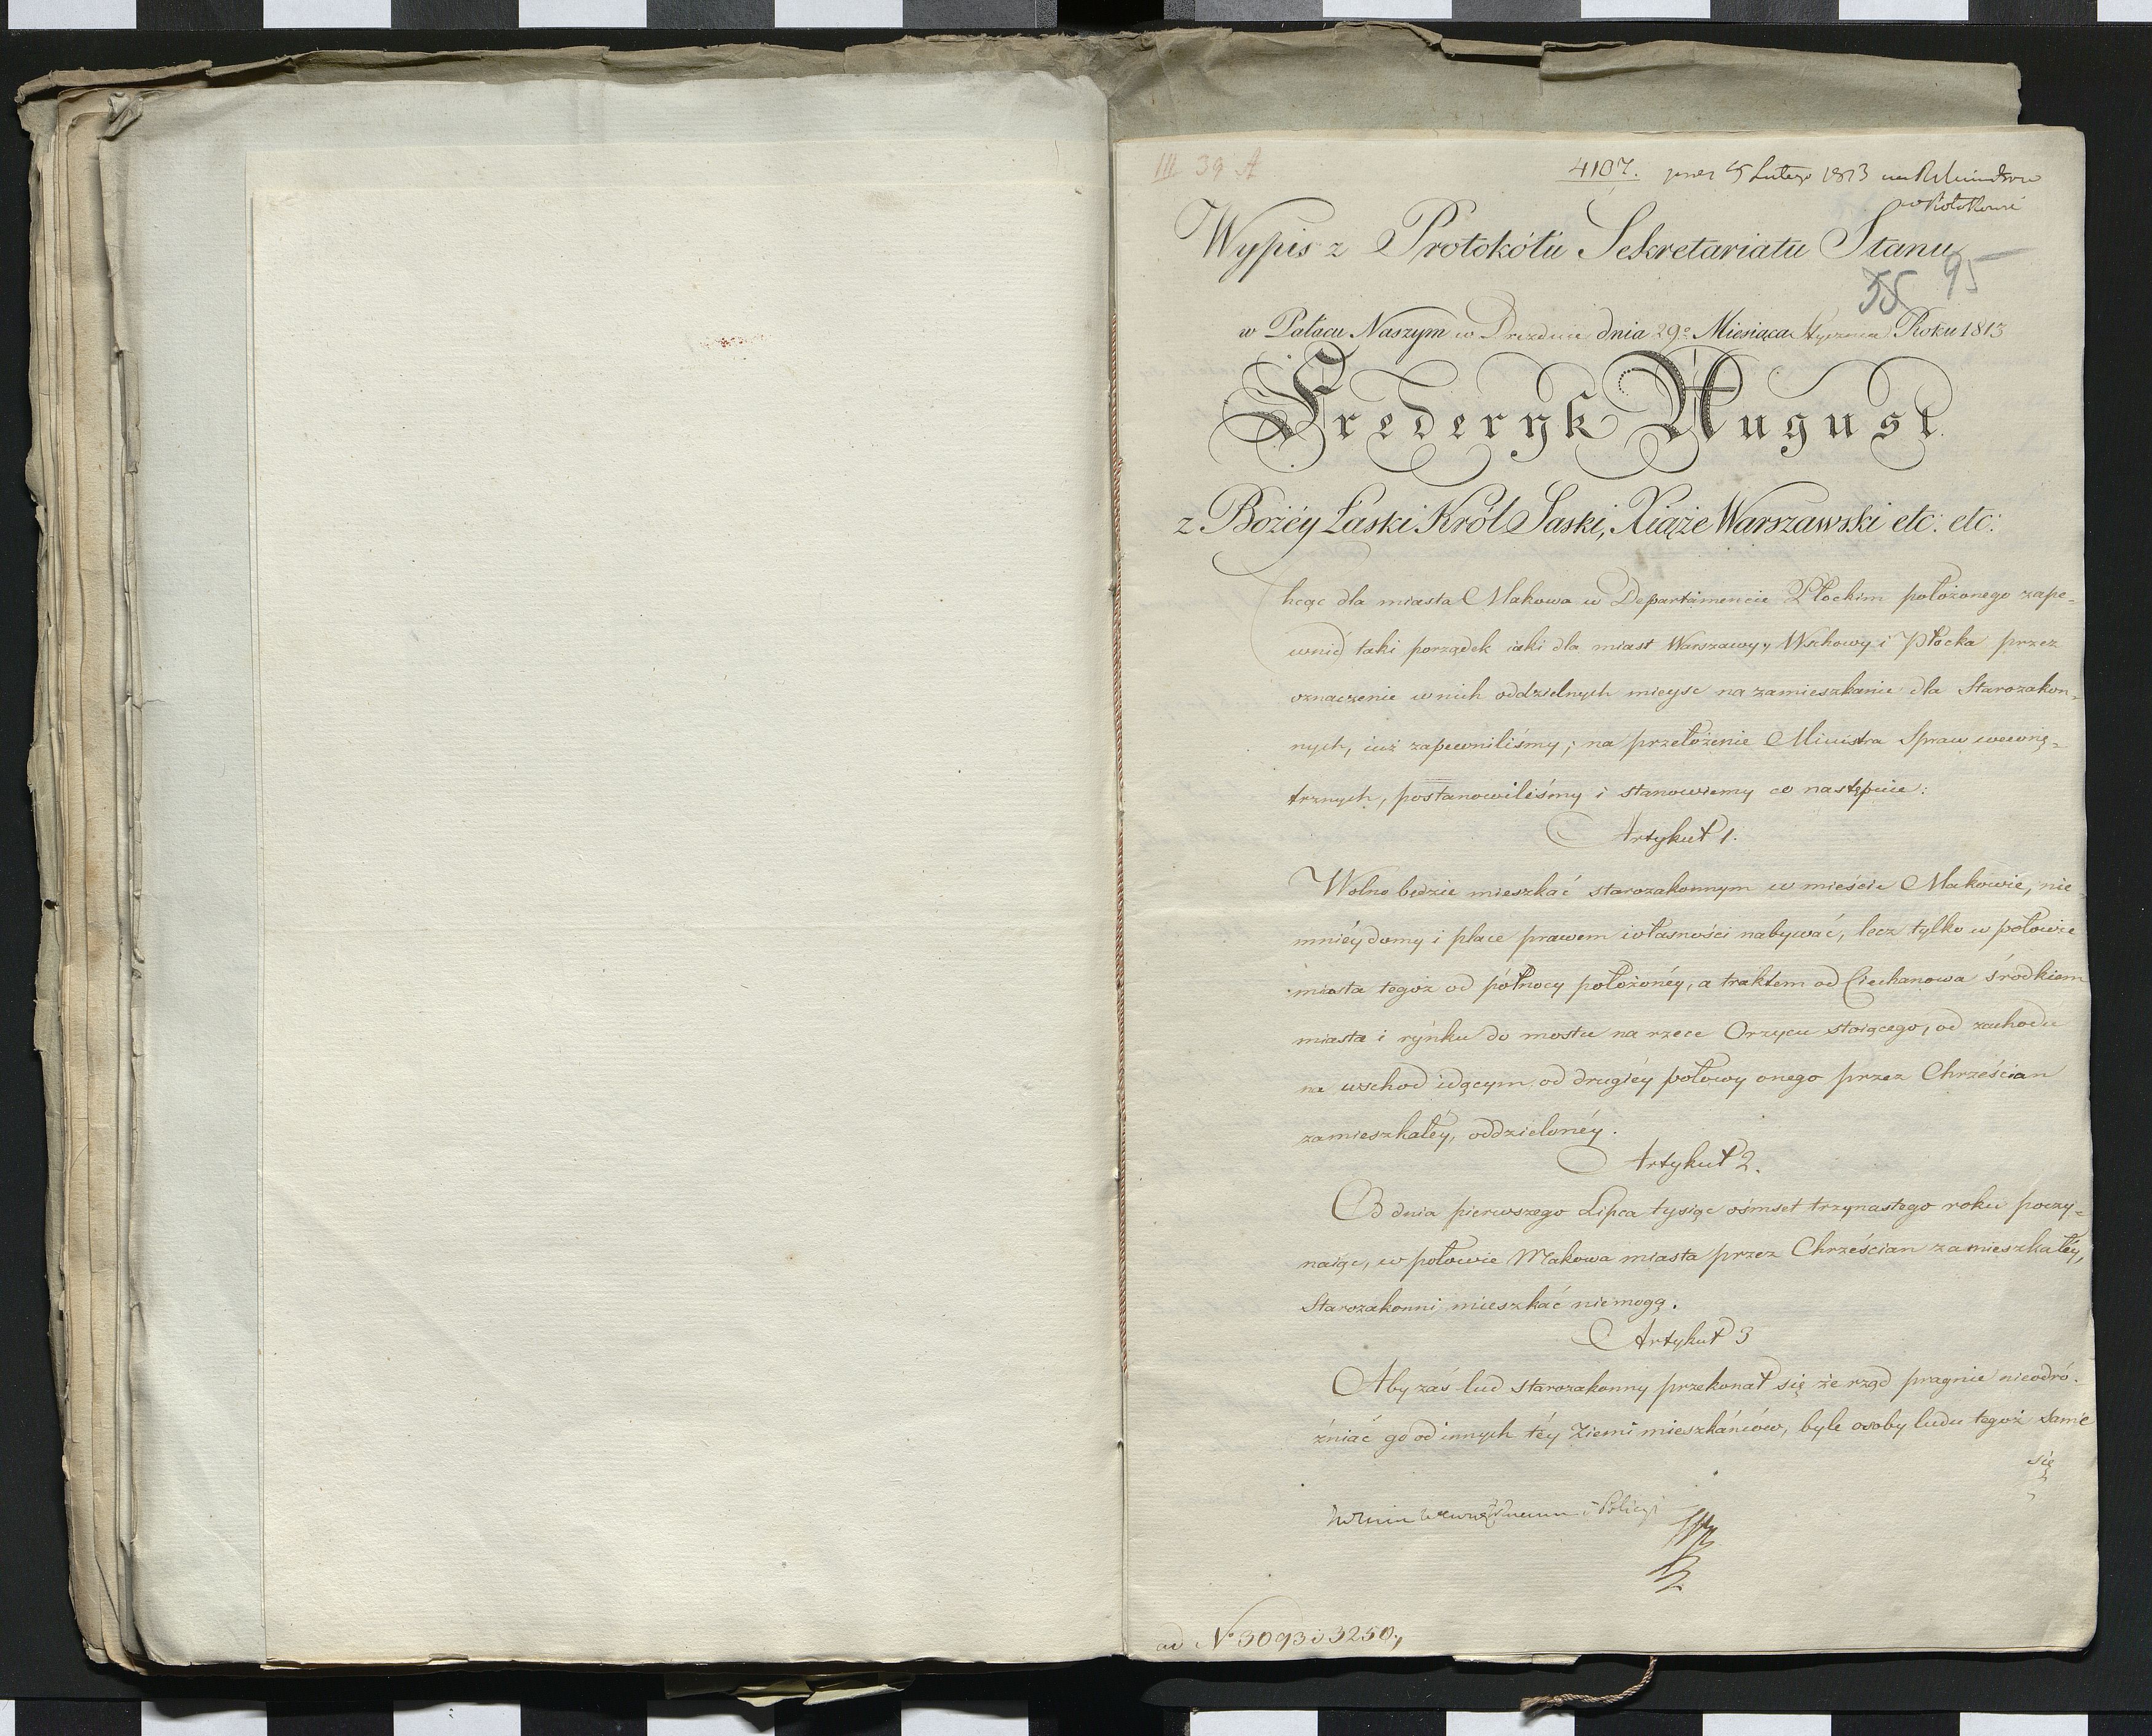 III 39 A
4107. prs 5 Lutego 1813
Wypis z Protokółu Sekretariatu Stanu
55 95
w Pałacu Naszym w Dreźnie dnia 29º Miesiąca Stycznia Roku 1813
Frederyk August
z Bożéy Łaski Król Saski, Xiąże Warszawski etc: etc:
Chcąc dla miasta Makowa w Departamencie Płockim położonego zape-
wnić taki porządek iaki dla miast Warszawy, Wschowy i Płocka przez
oznaczenie w nich oddzielnych mieysc na zamieszkanie dla Starozakon-
nych, iuż zapewniliśmy; na przełożenie Ministra Spraw wewnę-
trznych, postanowiliśmy i stanowiemy co następuie:
Artykuł 1.
Wolno będzie mieszkać starozakonnym w mieście Makowie, nie
mniéy domy i place prawem własności nabywać, lecz tylko w połowie
miasta tegoż od północy położonéy, a traktem od Ciechanowa środkiem
miasta i rynku do mostu na rzece Orzycu stoiącego, od zachodu
na wschod idącym od drugiéy połowy onego przez Chrześcian
zamieszkałéy, oddzielonéy.
Artykuł 2.
Od dnia pierwszego Lipca tysiąc ośmset trzynastego roku poczy-
naiąc, w połowie Makowa miasta przez Chrześcian zamieszkałéy,
Starozakonni mieszkać niemogą.
Artykuł 3
Aby zaś lud starozakonny przekonał się że rząd pragnie nieodró-
żniać go od innych téy Ziemi mieszkańców, byle osoby ludu tegoż same
się
i Policyi
ad Nº 3093 i 3250.,